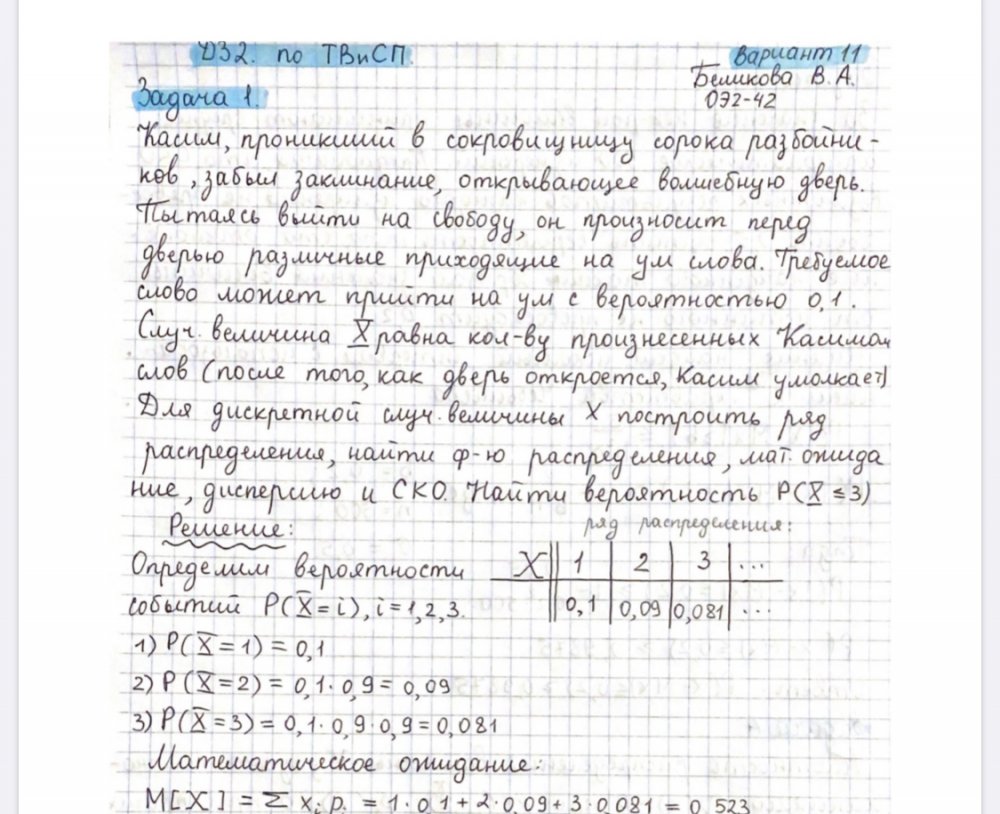 ДЗ2. по ТВиСП.
Вариант 11
Беликова В. А.
ОЭ2-42
Задача 1.
Касим, проникший в сокровищницу сорока разбойни-
ков, забыл заклинание, открывающее волшебную дверь.
Пытаясь выйти на свободу, он произносит перед
дверью различные приходящие на ум слова. Требуемое
слово может прийти на ум с вероятностью 0,1.
Случ. величина X равна кол-ву произнесенных Касимом
слов (после того, как дверь откроется, Касим умолкает)
Для дискретной случ. величины X построить ряд
распределения, найти ф-ю распределения, мат. ожида
ние, дисперсию и СКО. Найти вероятность P(X ≤ 3)
Решение:
ряд распределения:
Определим вероятности
событий P(X = i), i = 1, 2, 3.
X 1 2 3 ...
0,1 0,09 0,081 ...
1) P(X = 1) = 0,1
2) P(X = 2) = 0,1 · 0,9 = 0,09
3) P(X = 3) = 0,1 · 0,9 · 0,9 = 0,081
Математическое ожидание:
M[X] = Σ xᵢ pᵢ = 1 · 0,1 + 2 · 0,09 + 3 · 0,081 = 0,523